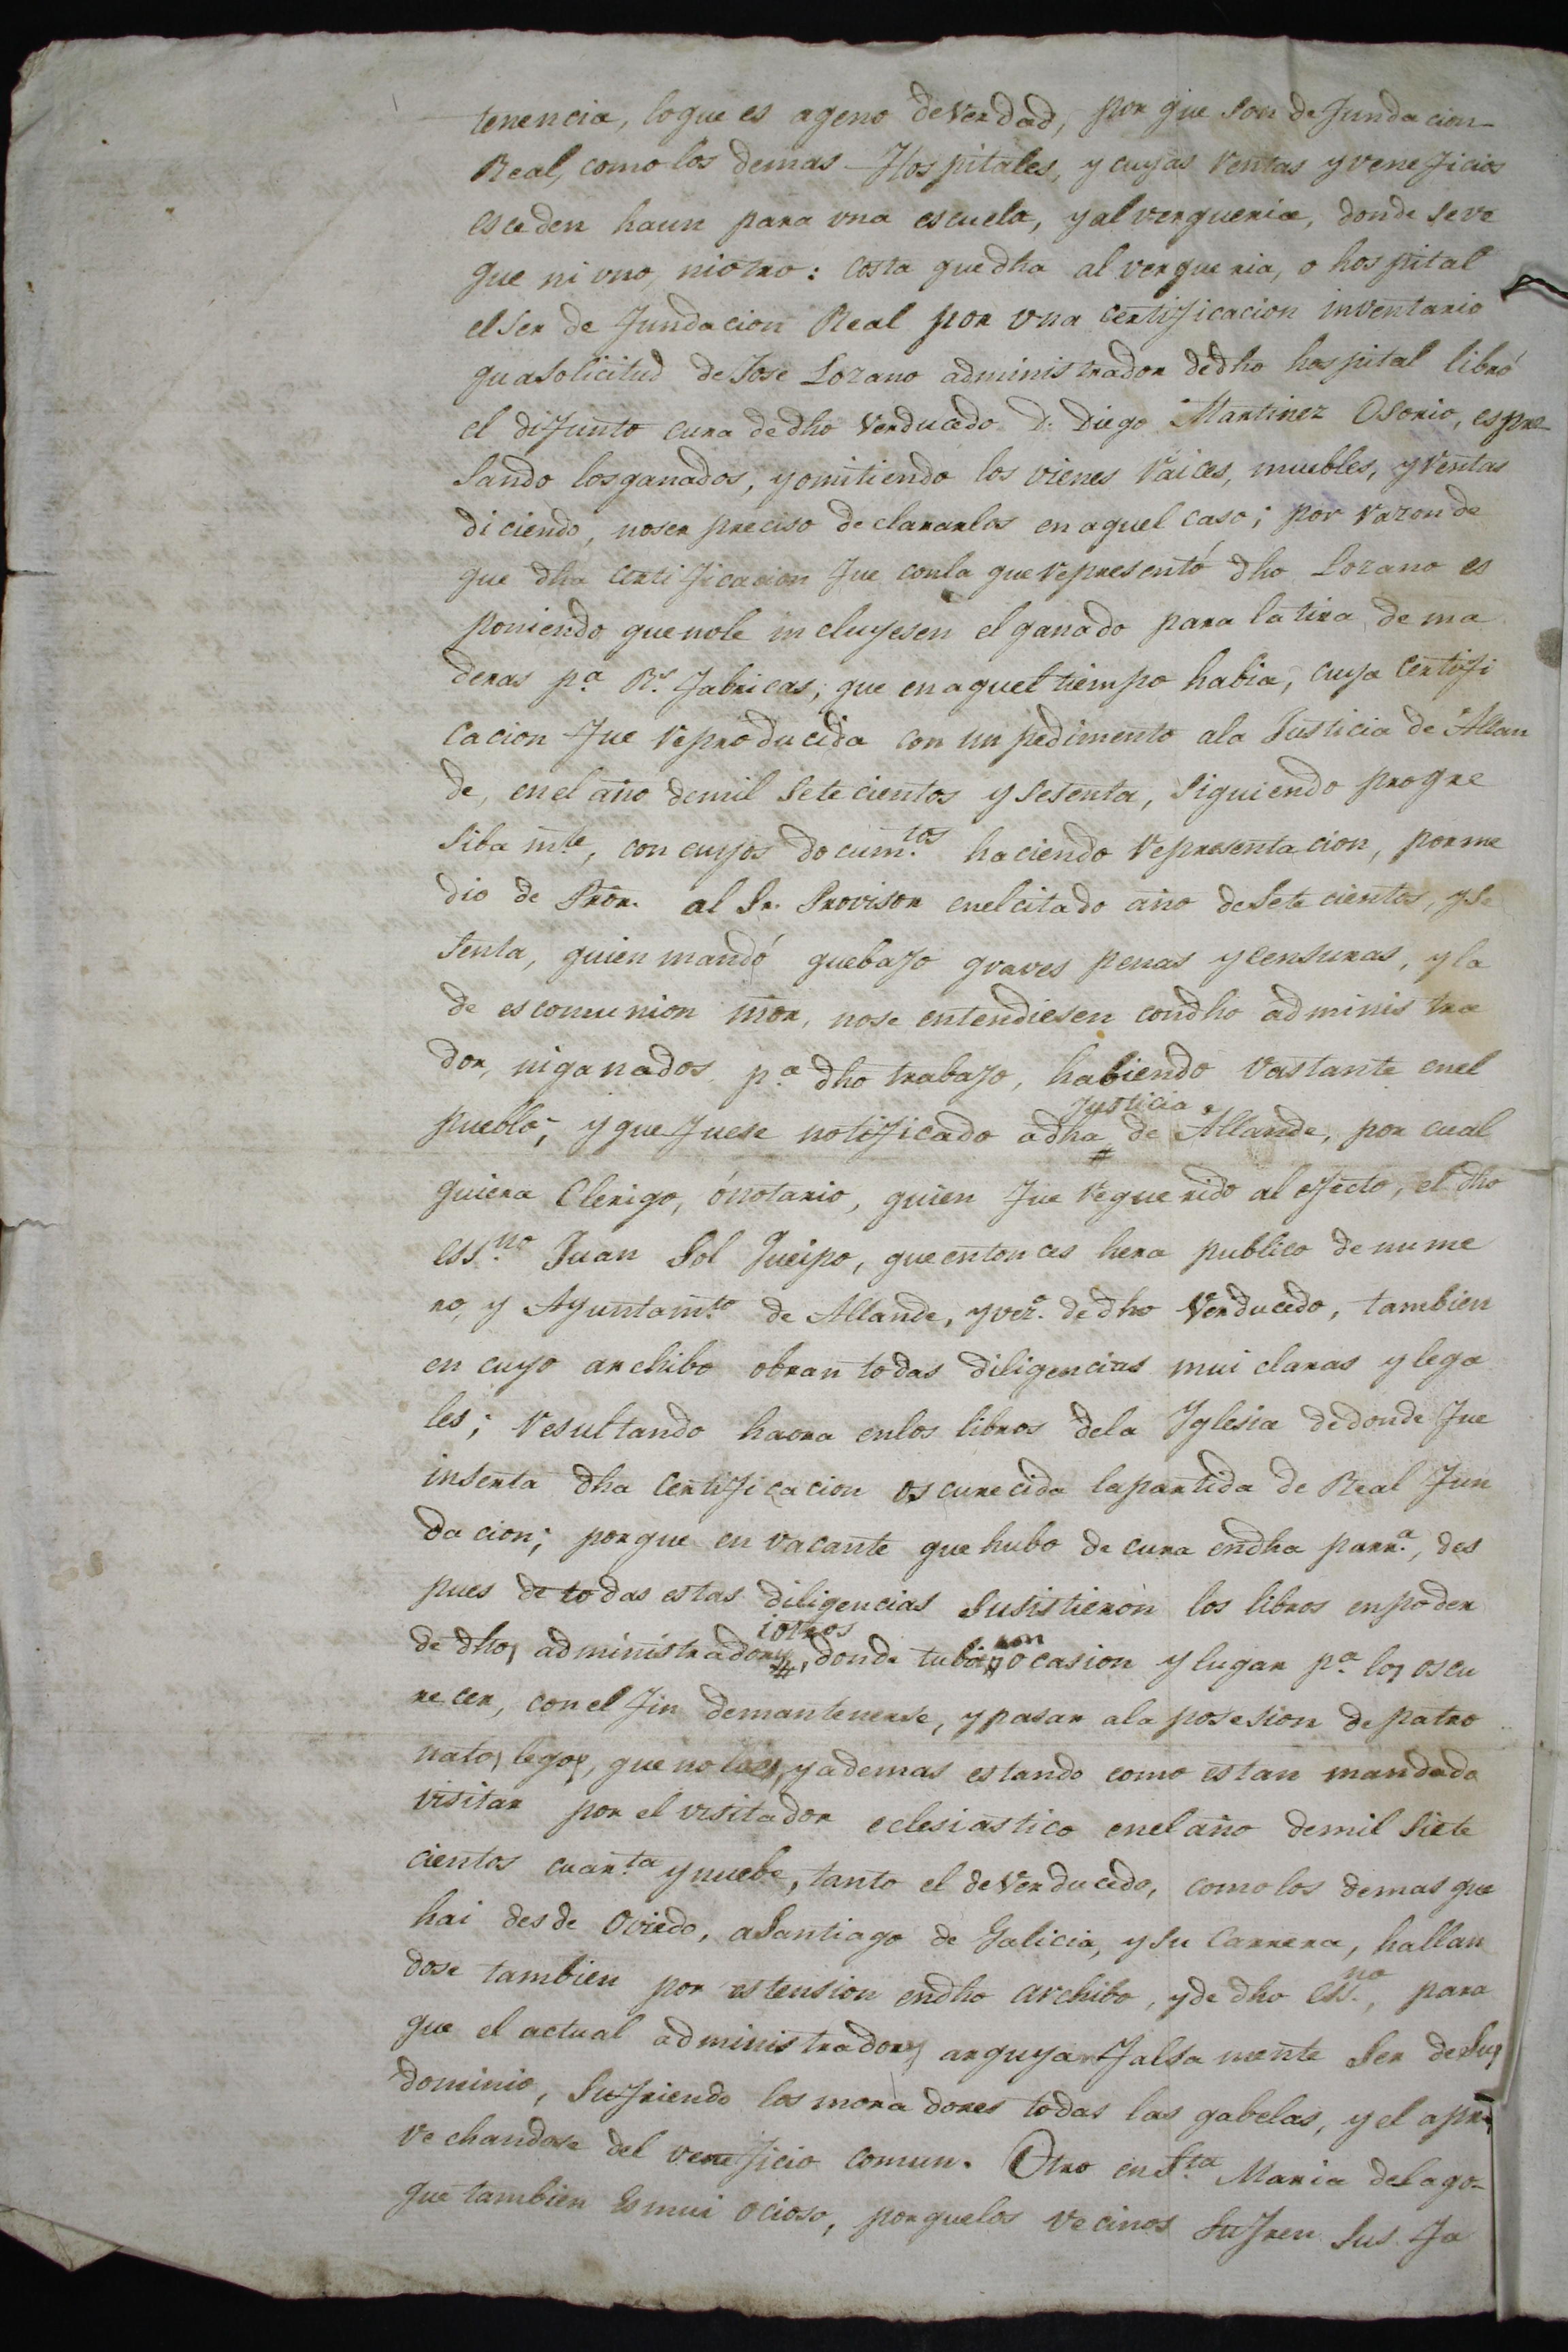 tenencia, loque es ageno deverdad, por que son de fundacion
Real, como los demas Hospitales, y cuyas Rentas y veneficios
esceden haun para una escuela, y alvergueria, donde seve
que ni uno, niotro: costa quedha alvergueria, o hospital
elser de fundacion Real por una certificacion inventario
qu asolicitud de Jose Lozano administrador dedho hospital libró
el difunto cura de dho Verducedo D. Diego Martinez Osorio, espre
sando losganados, yomitiendo los vienes raices, muebles, y rentas
diciendo, noser preciso declararlos en aquel caso; por razon de
que dha certificacion fue conla que representó dho Lozano es
poniendo quenole incluyesen el ganado para la tira de ma
deras pª Rs. fabricas, que en aquel tiempo habia, cuya certifi
cacion fue reproducida con un pedimento ala Justicia de Allan
de, enel año demil setecientos y setenta, siguiendo progre
siba mte, con cuyos docum.tos haciendo representacion, porme
dio de Pror. al Sr. Provisor enelcitado año desete cientos, y se
tenta, quien mandó quebajo graves penas y censuras, y la
de escomunion mor, nose entendiesen condho administra
dor, niganados pª dho trabajo, habiendo vastante enel
pueblo; y que fuese notificado adha Justicia de Allande, por cual
quiera Clerigo, ónotario, quien fue requerido al efecto, el dho
ess.no Juan Sol Queipo, que entonces hera publico de nume
ro, y Ayuntam.to de Allande, y vezº. de dho Verducedo, tambien
en cuyo archibo obran todas diligencias mui claras y lega
les; resultando haora enlos libros dela Yglesia dedonde fue
inserta dha certificacion oscurecida lapartida de Real fun
dacion; porque en vacante que hubo de cura endha parr.ª, des
pues de todas estas diligencias susistieron los libros enpoder
de dhos administradory iotros, donde tubieron ocasion y lugar pª los oscu
recer, con el fin demantenerse, y pasar ala posesion de patro
natos legos, que no los y ademas estando como estan mandado
visitar por el visitador eclesiastico enel año demil siete
cientos cuar.ta y nuebe, tanto el deVerducedo, como los demas que
hai desde Oviedo, aSantiago de Galicia, y su Carrera, hallan
dose tambien por estension endho archibo, y de dho ess.no, para
que el actual administrador arguya falsa mente ser de su
dominio, sufriendo los moradores todas las gabelas, y el apro
vechandose del veneficio comun. Otro en Sta Maria delago
que tambien es mui ocioso, porquelos vecinos sufren sus fa